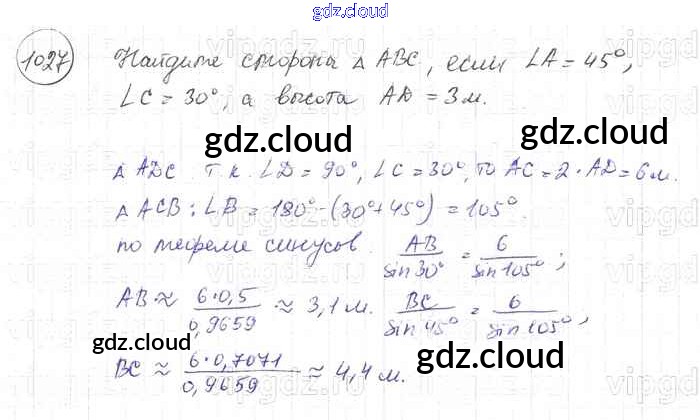 gdz.cloud
1027 Найдите стороны △ ABC, если ∠A = 45°,
∠C = 30°, а высота AD = 3 м.
gdz.cloud gdz.cloud
△ ADC т.к. ∠D = 90°, ∠C = 30°, то AC = 2 · AD = 6 м.
△ ACB : ∠B = 180° - (30° + 45°) = 105°.
по теореме синусов. AB/sin 30° = 6/sin 105° ;
AB ≈ 6·0,5/0,9659 ≈ 3,1 м. BC/sin 45° = 6/sin 105° ,
gdz.cloud gdz.cloud
BC ≈ 6·0,7071/0,9659 ≈ 4,4 м.